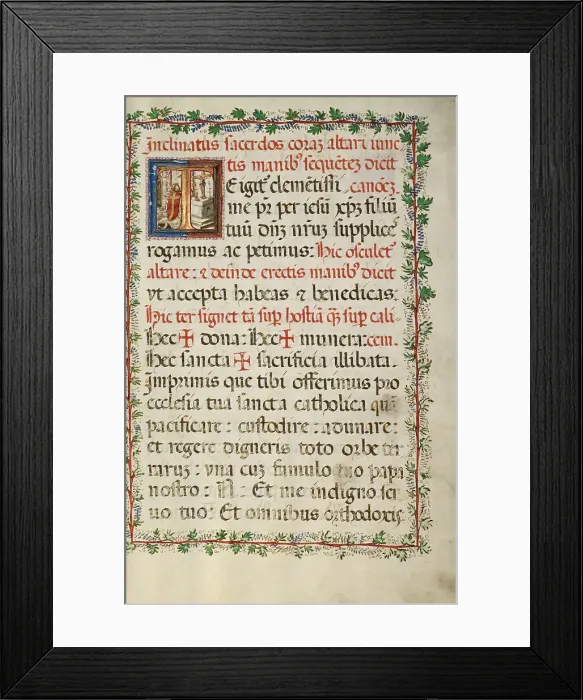 Inclinatus sacerdos coraz altari iunc
tis manib9 sequētez dicit
T E igit᷑ clemētissi canōez.
me pr̄ per iesū xp̄z filiū
tuū dn̄z nr̄uz supplice
rogamus ac petimus: Hic osculet᷑
altare: ⁊ deinde erectis manib9 dicit
vt accepta habeas ⁊ benedicas.
Hic ter signet tā sup̱ hostiā q̄ȝ sup̱ cali-
Hec ✠ dona: Hec ✠ munera: cem.
Hec sancta ✠ sacrificia illibata.
Imprimis que tibi offerimus pro
ecclesia tua sancta catholica quā
pacificare: custodire: adunare:
et regere digneris toto orbe ter
raruz: vna cuz famulo tuo papa
nostro: N: Et me indigno ser
uo tuo: Et omnibus orthodoxis